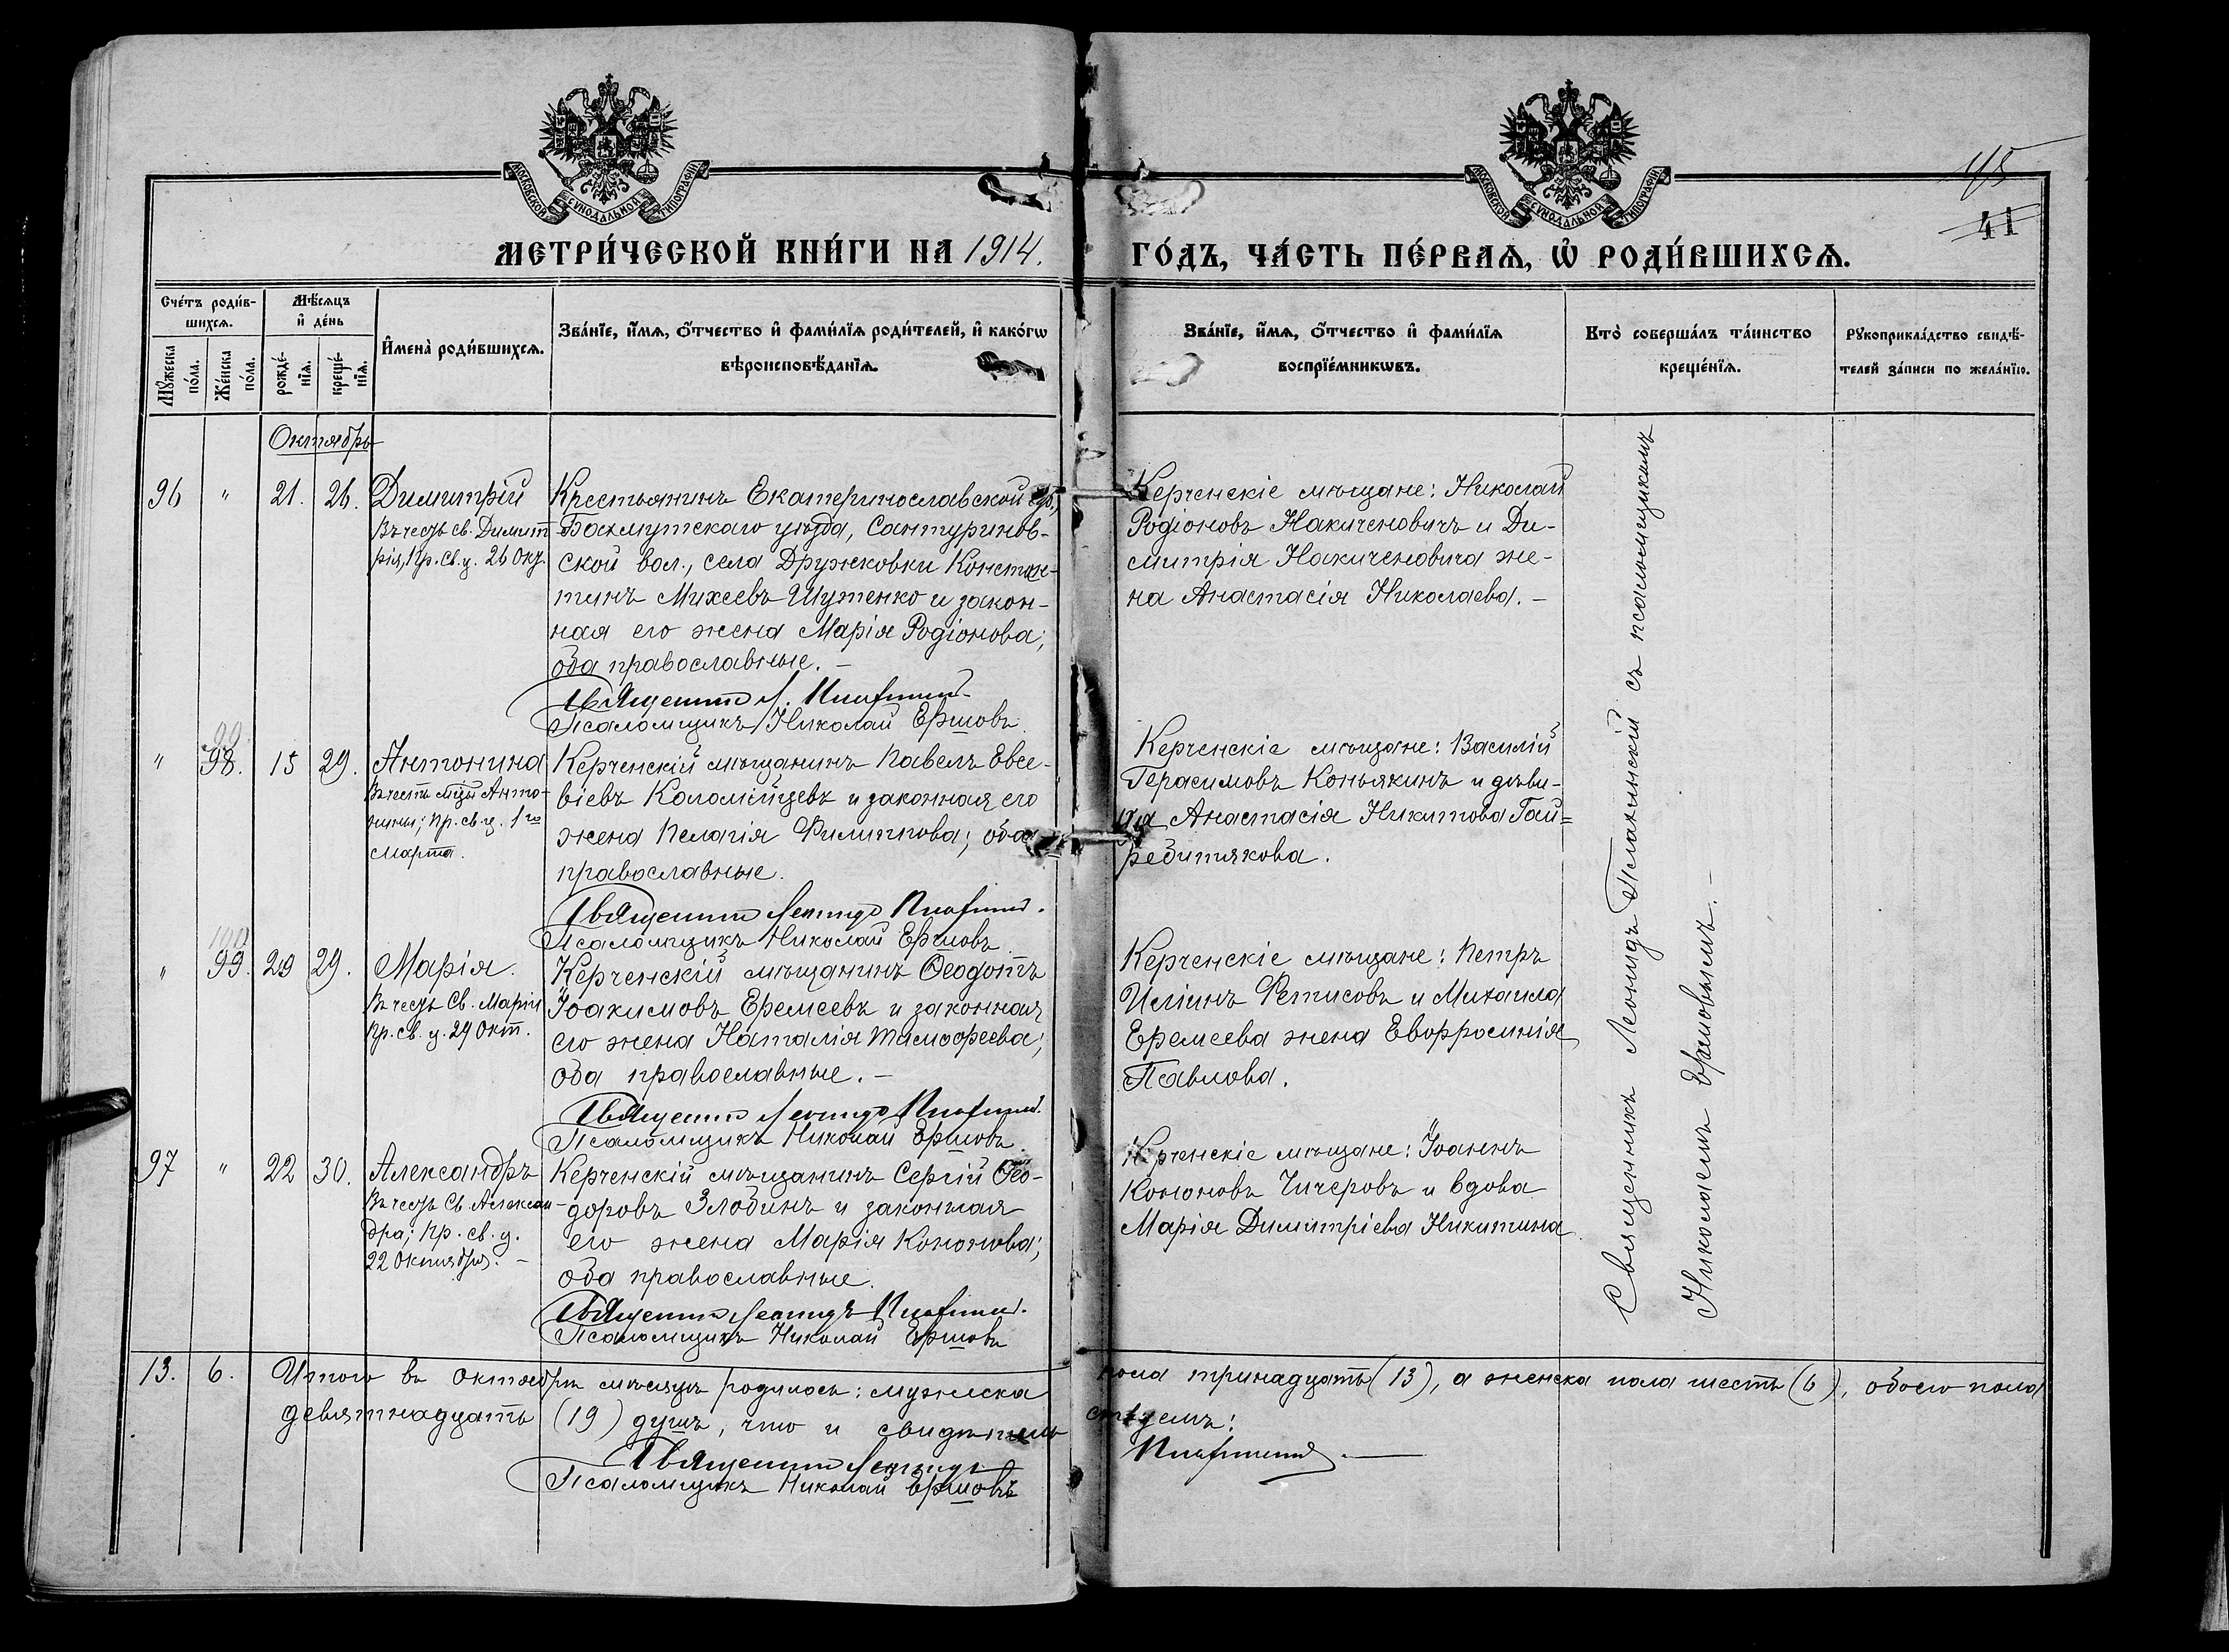 МОСКОВСКОЙ СѴНОДАЛЬНОЙ ТИПОГРАФІИ
МОСКОВСКОЙ СѴНОДАЛЬНОЙ ТИПОГРАФІИ
45
41
МЕТРИ́ЧЕСКОЙ КНИ́ГИ НА 1914. ГО́ДЪ, ЧА́СТЬ ПЕ́РВАЯ, Ѡ҆ РОДИ́ВШИХСЯ.
Сче́тъ роди́в-
шихся.
Мꙋ́жеска по́ла.
Же́нска по́ла.
Мѣ́сяцъ
и҆ де́нь
рожде́-
нїя.
креще́-
нїя.
И҆мена̀ роди́вшихся.
Зва́нїе, и҆́мя, ѻ҆́тчество и҆ фами́лїя роди́телей, и҆ како́гѡ
вѣроисповѣ́данїя.
Зва́нїе, и҆́мя, ѻ҆́тчество и҆ фами́лїя
воспрїе́мникѡвъ.
Кто̀ соверша́лъ та́инство
креще́нїя.
Рꙋкоприкла́дство свидѣ́-
телей за́писи по жела́нїю.
Октябрь
96 " 21. 26. Димитрій
Въ честь св. Димит-
рія, Пр. св. ц. 26 Окт.
Крестьянинъ Екатеринославской губ.,
Бахмутскаго уѣзда, Сантуринов-
ской вол., села Дружковки Констан-
тинъ Михеевъ Шутенко и закон-
ная его жена Марія Родіонова;
оба православные. –
Священникъ Л.
Псаломщикъ Николай Ершовъ
Керченскіе мѣщане: Николай
Родіоновъ Накиченовичъ и Ди-
митрія Накиченовича же-
на Анастасія Николаева. –
" 99 98. 15 29. Антонина
Въ честь мцы Анто-
нины; Пр. св. ц. 1го
Марта.
Керченскій мѣщанинъ Павелъ Евсе-
віевъ Коломійцевъ и законная его
жена Пелагія Филиппова; оба
православные.
Священникъ Леонидъ
Псаломщикъ Николай Ершовъ
Керченскіе мѣщане: Василій
Герасимовъ Коньякинъ и дѣви-
ца Анастасія Никитова Гай=
ребитякова.
" 100 99. 29 29. Марія.
Въ честь Св. Маріи
Пр. св. ц. 29 Окт.
Керченскій мѣщанинъ Ѳеодотъ
Іоакимовъ Еремеевъ и законная
его жена Наталія Тимофеева;
оба православные. –
Священникъ Леонидъ
Псаломщикъ Николай Ершовъ
Керченскіе мѣщане: Петръ
Иліинъ Фетисовъ и Михаила
Еремеева жена Евфросинія
Павлова.
97 " 22 30. Александръ
Въ честь Св. Алексан-
дра; Пр. св. ц.
22 Октября. –
Керченскій мѣщанинъ Сергій Ѳео-
доровъ Злобинъ и законная
его жена Марія Кононова;
оба православные.
Священникъ Леонидъ
Псаломщикъ Николай Ершовъ
Керченскіе мѣщане: Іоаннъ
Кононовъ Чичеровъ и вдова
Марія Димитріева Никитина.
Священникъ Леонидъ съ псаломщикомъ
Николаемъ Ершовымъ. –
13. 6. Итого въ октябрѣ мѣсяцѣ родилось: мужеска пола тринадцать (13), а женска пола шесть (6), обоего пола
девятнадцать (19) душъ, что и свидѣтельствуемъ:
Священникъ Леонидъ
Псаломщикъ Николай Ершовъ